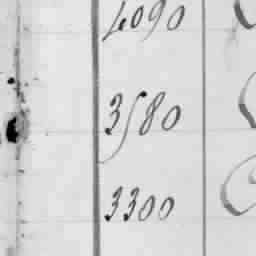 4090
3580
3300